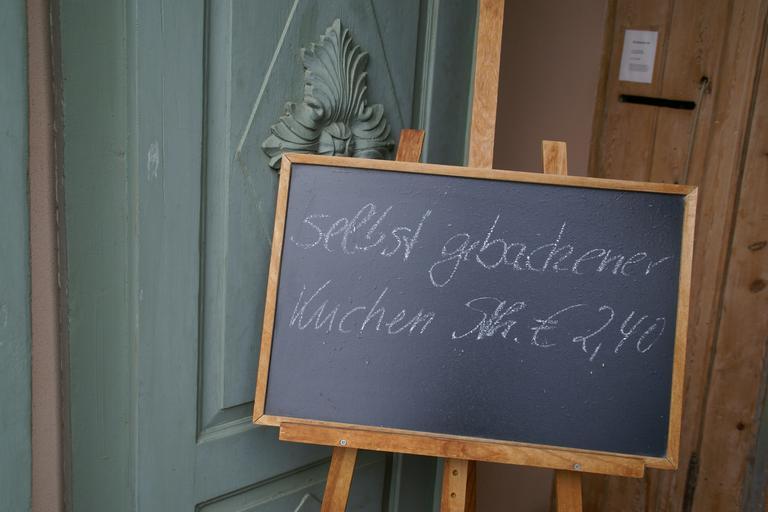 selbst gebackener
Kuchen Stk. € 2,40